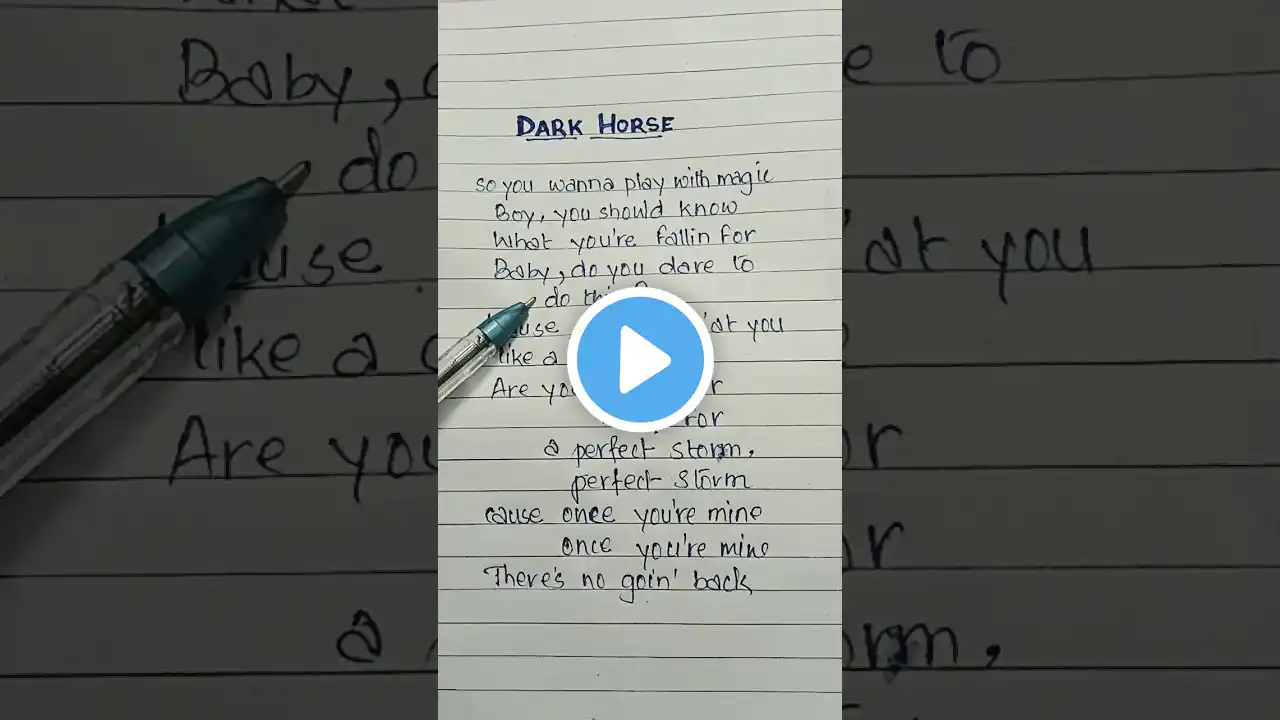 DARK HORSE
so you wanna play with magic
Boy, you should know
What you're fallin for
Baby, do you dare to
do
like a
Are
for
a perfect storm,
perfect storm
cause once you're mine
once you're mine
There's no goin' back